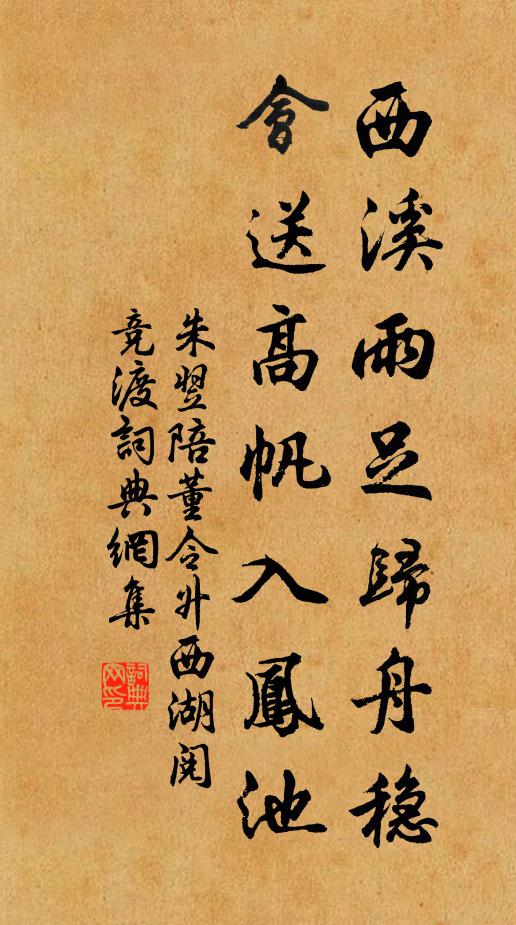 西溪雨足歸舟穩
會送高帆入鳳池
朱翌陪董令升西湖閱
竞渡詞典網集
詞典网印